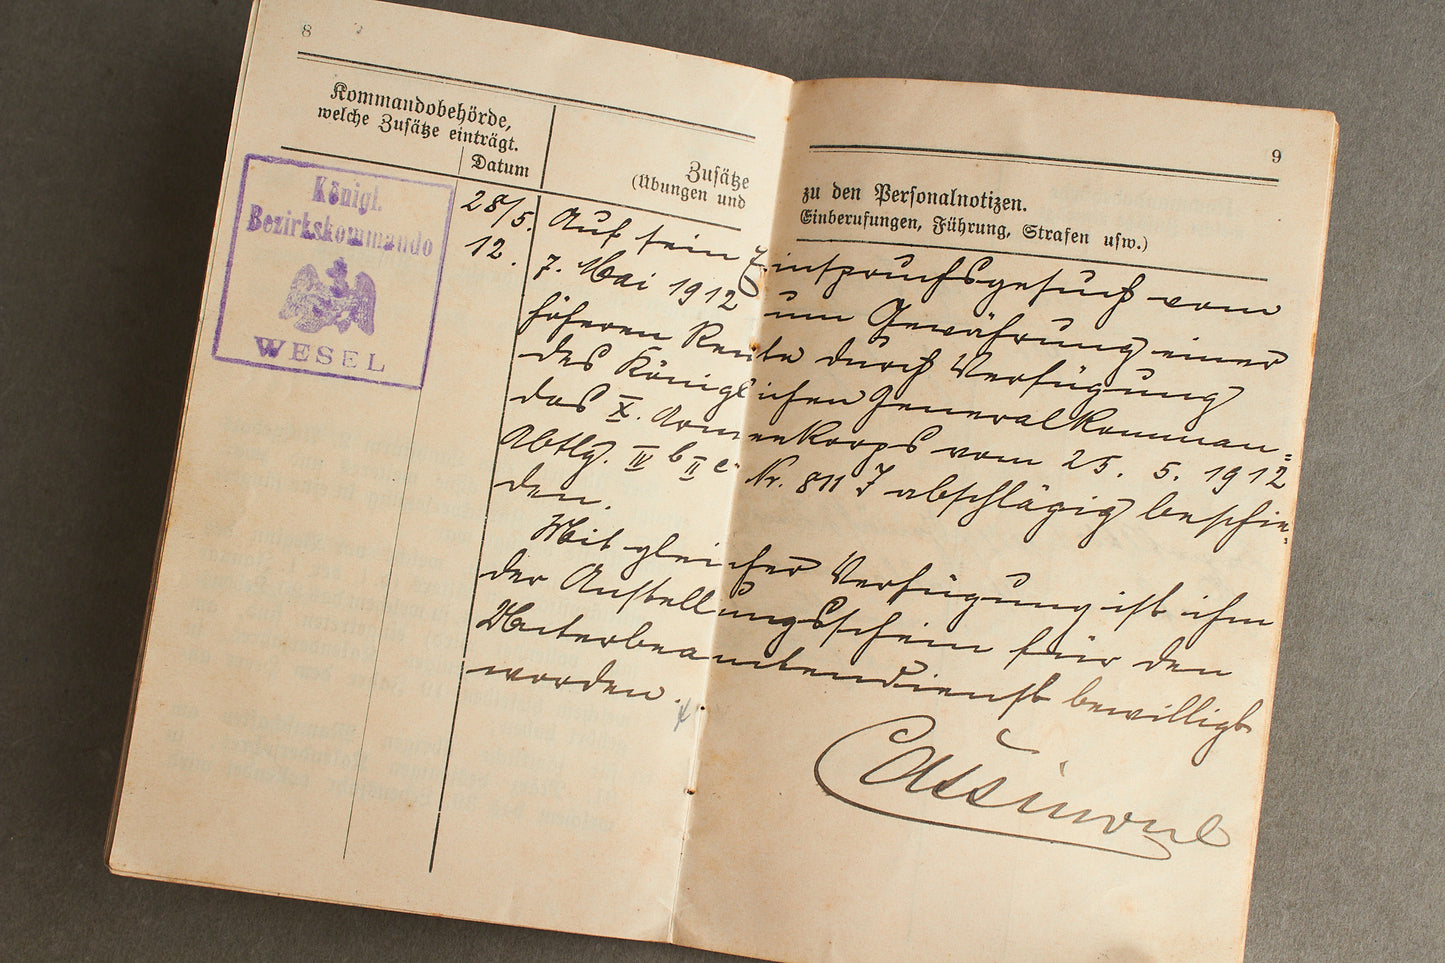 8
Kommandobehörde,
welche Zusätze einträgt.
Datum
Zusätze
(Übungen und
9
zu den Personalnotizen.
Einberufungen, Führung, Strafen usw.)
Königl.
Bezirkskommando
WESEL
28/5.
12.
Auf sein Einspruchsgesuch vom
7. Mai 1912 um Gewährung einer
höheren Rente durch Verfügung
des Königlichen Generalkomman=
dos X. Armeekorps vom 25. 5. 1912
Abtlg. IV b II c. Nr. 811 J abschlägig beschie=
den.
Mit gleicher Verfügung ist ihm
der Anstellungsschein für den
Unterbeamtendienst bewilligt
worden.